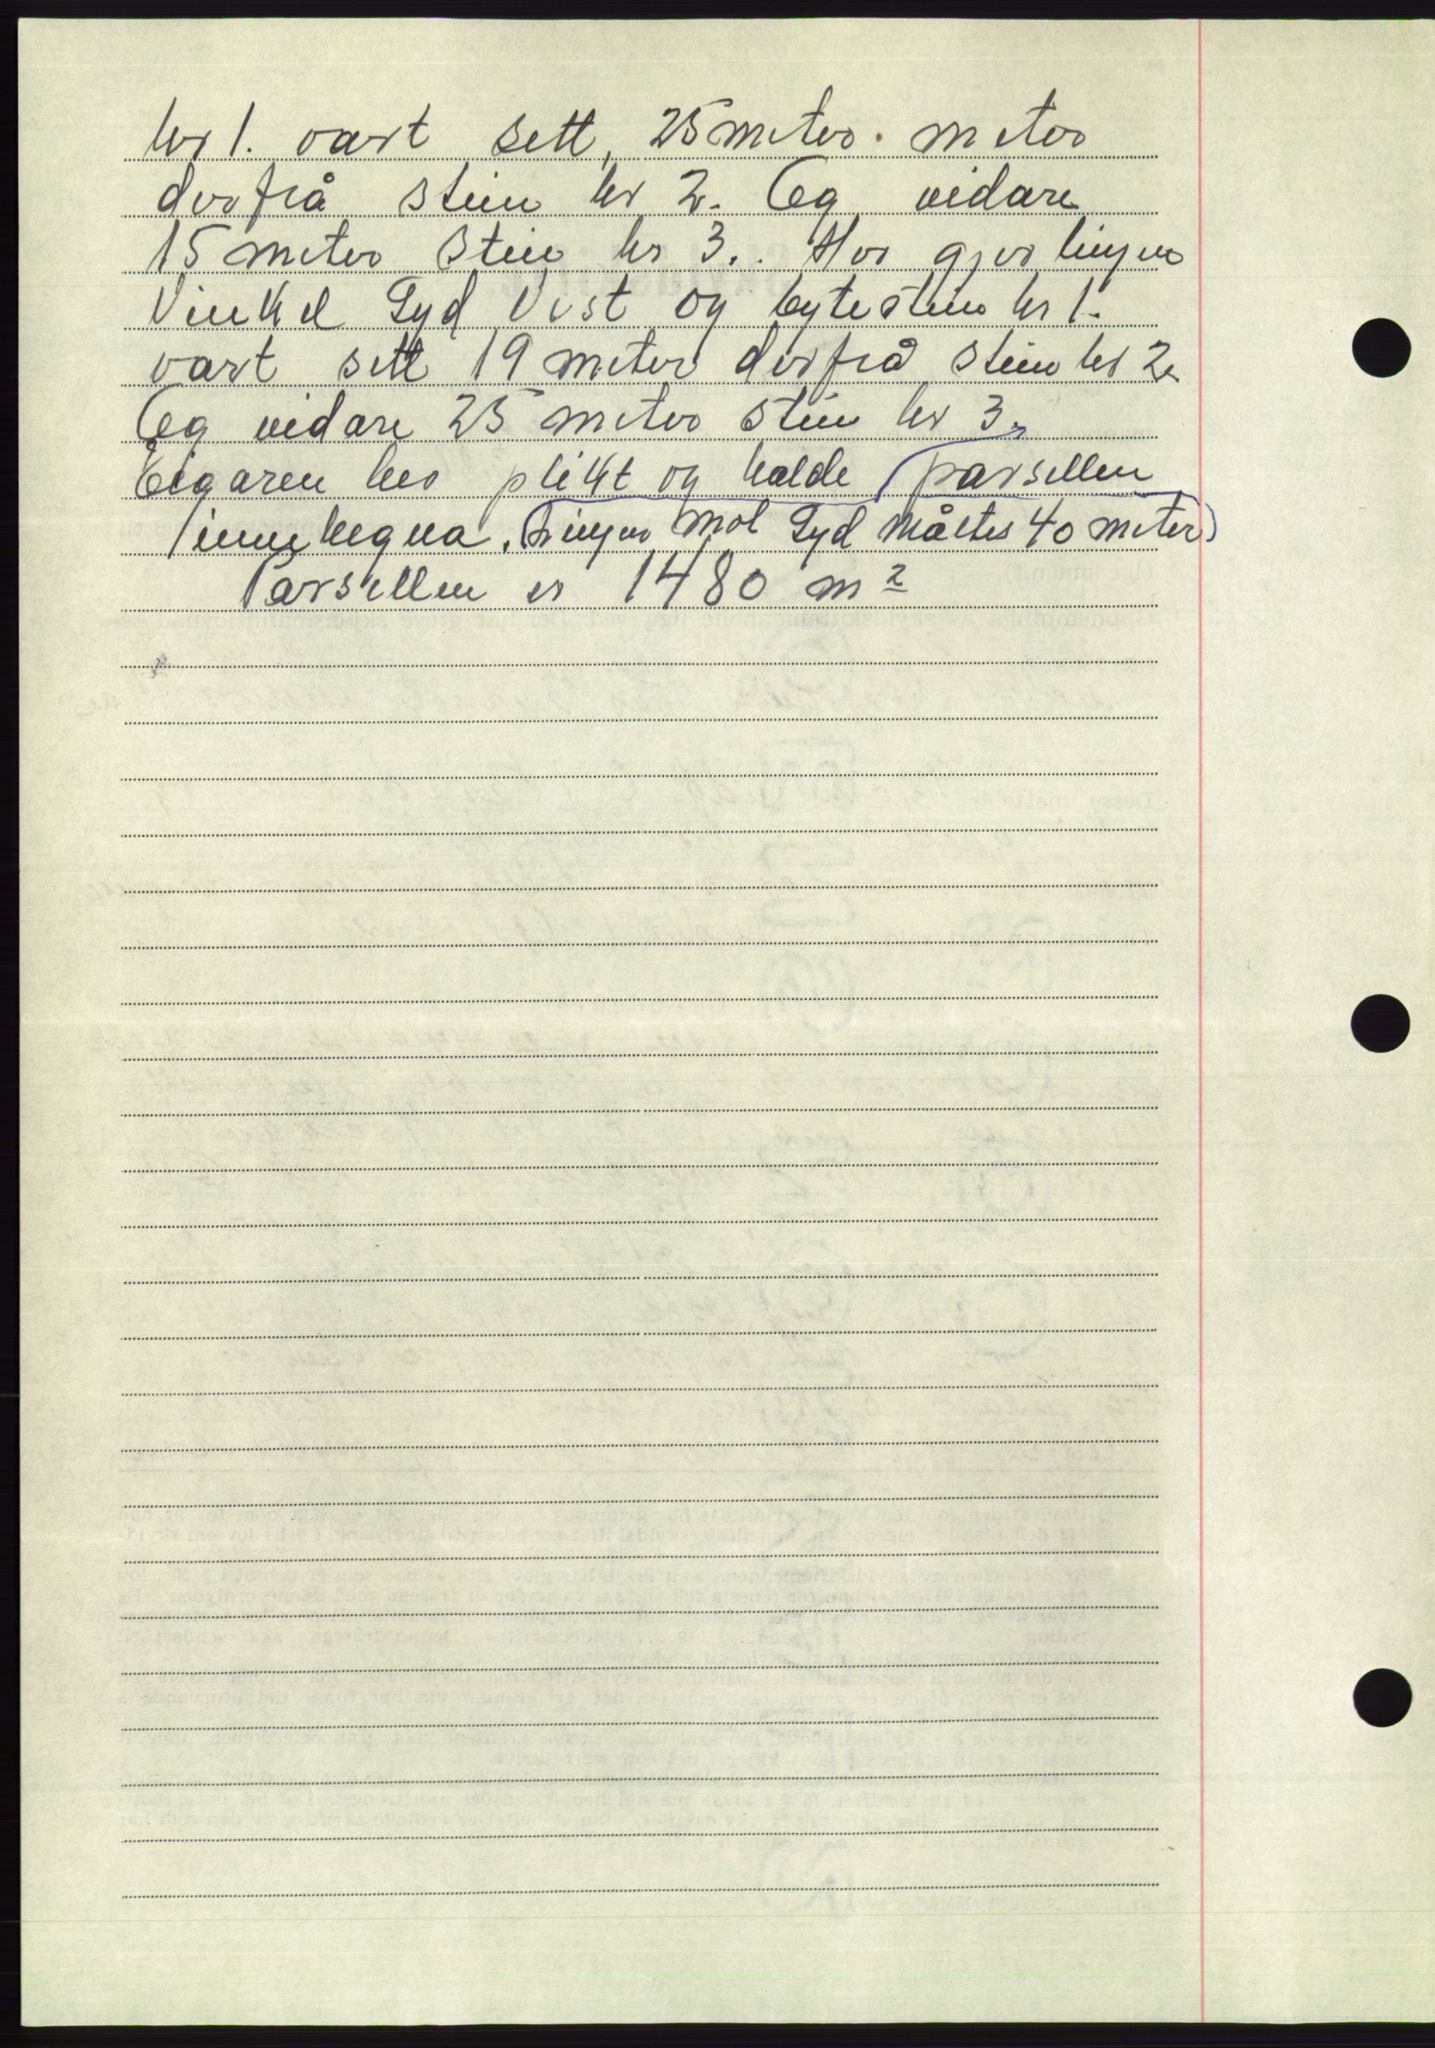 nr 1. vart sett, 25 meter. meter
derfrå stein nr 2. Og vidare
15 meter stein nr 3.. Her gjer linjen
Vinkel Syd Vest og bytestein nr 1.
vart sett 19 meter derfrå stein nr 2.
Og vidare 25 meter stein nr 3.
Eigaren hev plikt og halde parsellen
innehegna. (Linjen mot Syd måltes 40 meter)
Parsellen er 1480 m²